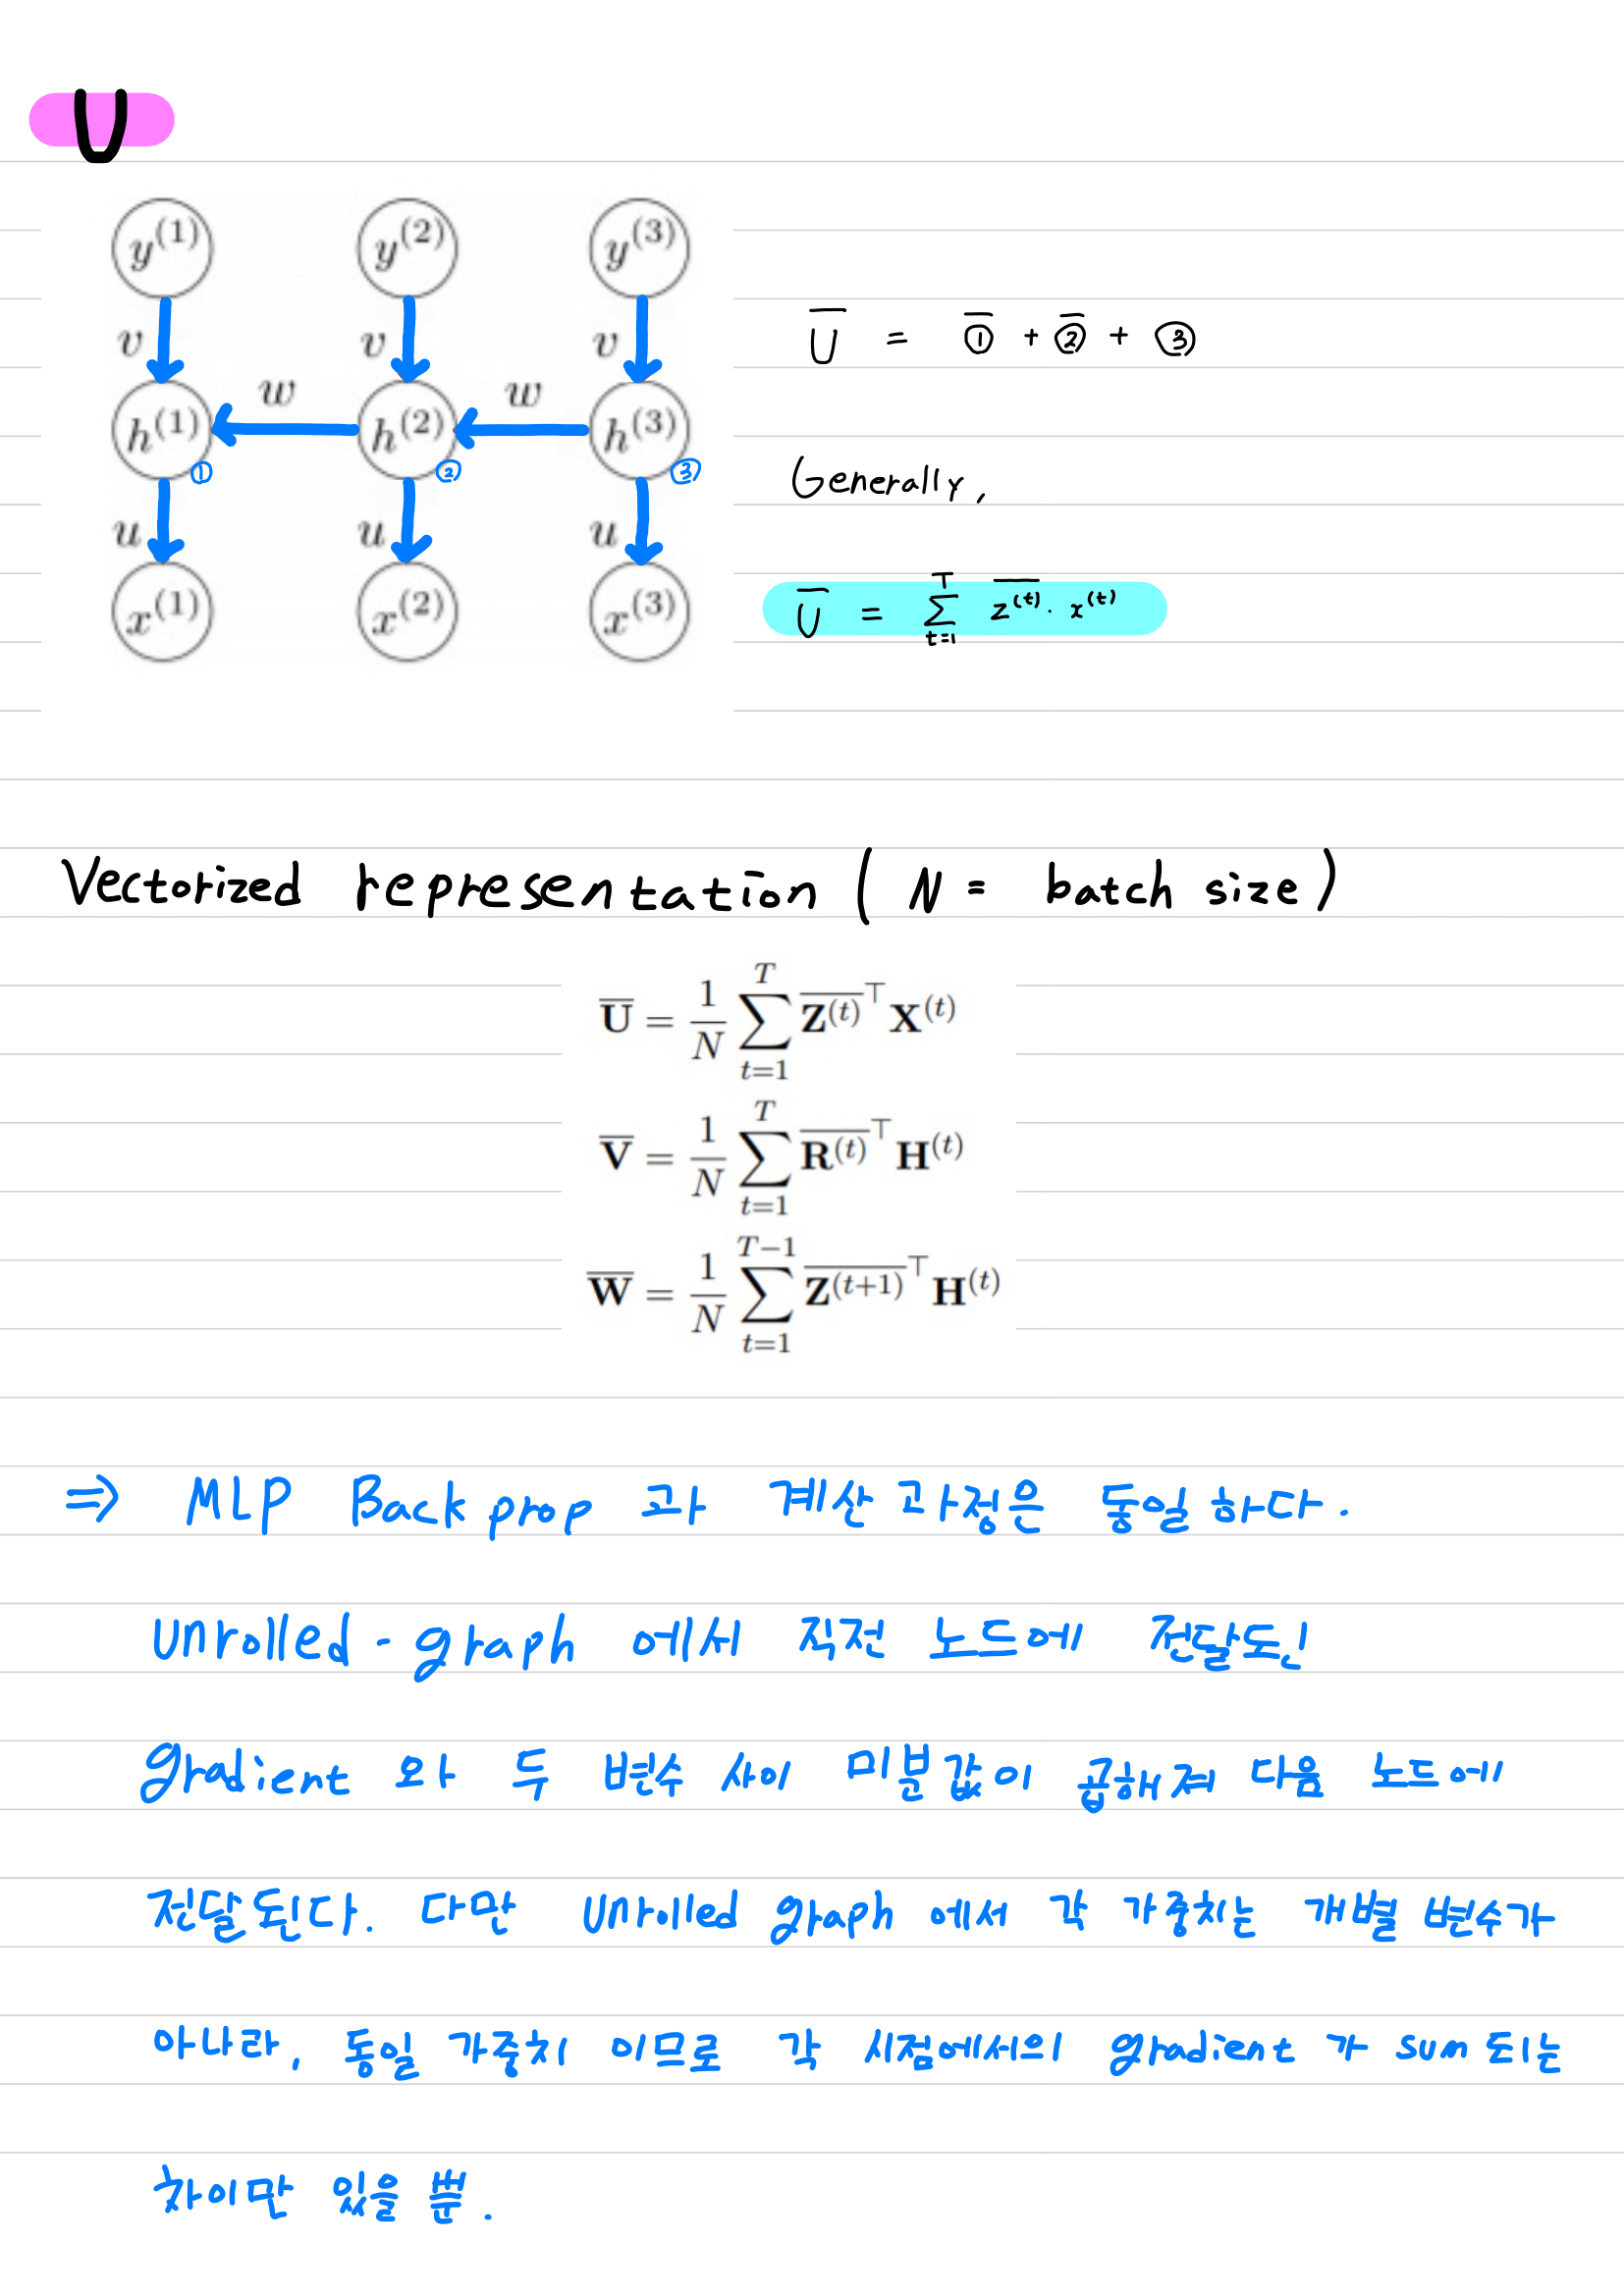 U
y^(1) y^(2) y^(3)
v v v
w w
h^(1) h^(2) h^(3)
① ② ③
u u u
x^(1) x^(2) x^(3)
U̅ = ①̅ + ②̅ + ③
Generally,
U̅ = Σ_{t=1}^{T} \overline{z^(t)} · x^(t)
Vectorized representation ( N = batch size )
\overline{U} = \frac{1}{N} Σ_{t=1}^{T} \overline{Z^(t)}^⊤ X^(t)
\overline{V} = \frac{1}{N} Σ_{t=1}^{T} \overline{R^(t)}^⊤ H^(t)
\overline{W} = \frac{1}{N} Σ_{t=1}^{T−1} \overline{Z^(t+1)}^⊤ H^(t)
⇒ MLP Backprop 과 계산과정은 동일하다.
unrolled-graph 에서 직전 노드에 전달된
gradient 와 두 변수 사이 미분값이 곱해져 다음 노드에
전달된다. 다만 unrolled graph 에서 각 가중치는 개별 변수가
아니라, 동일 가중치 이므로 각 시점에서의 gradient 가 sum 되는
차이만 있을 뿐.